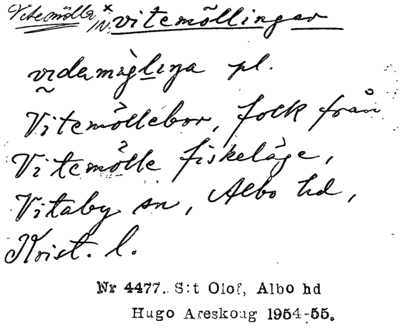 Vitemölla × /N. vitemöllingar
videmiġliŋa pl.
Vitemöllebor, folk från
Vitemölle fiskeläge,
Vitaby sn, Albo hd,
Krist. l.
Nr 4477. S:t Olof, Albo hd
Hugo Areskoug 1954-55.